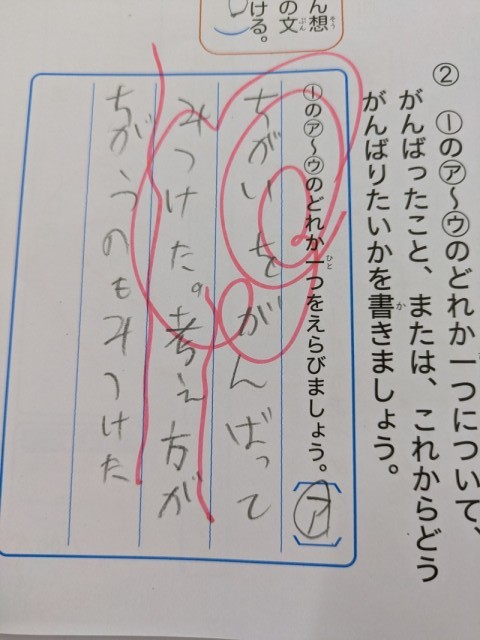 ん想
の文
ける。
② ①の㋐~㋒のどれか一つについて、
がんばったこと、または、これからどう
がんばりたいかを書きましょう。
①の㋐~㋒のどれか一つをえらびましょう。[㋐]
ちがいをがんばって
みつけた。考え方が
ちがうのもみつけた